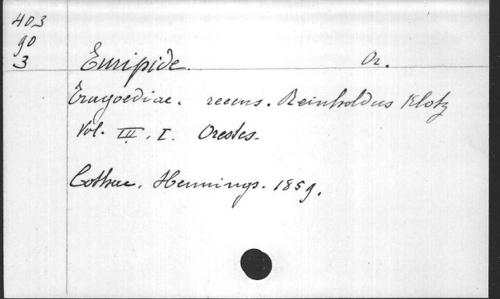 403
90
3
Euripide. Or.
Tragoediae. recens. Reinholdus Klotz
Vol. III, I. Orestes.
Gothae, Hennings. 1859.